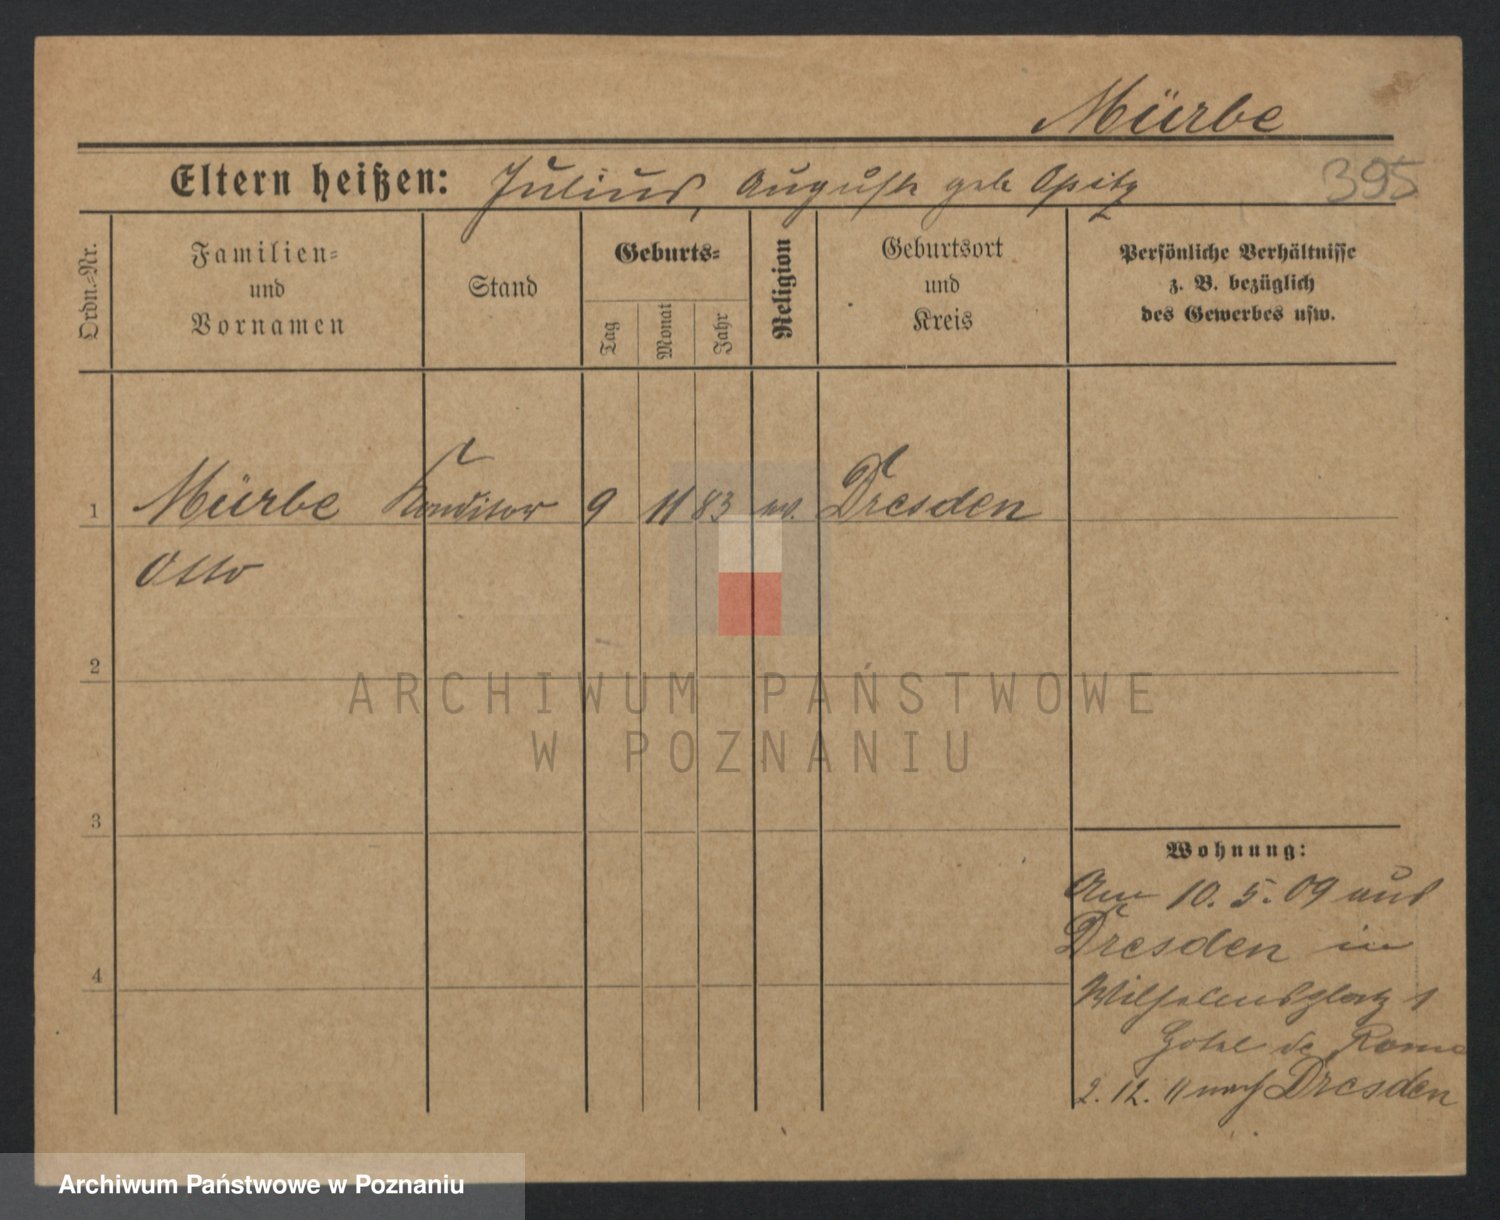 Mürbe
395
Eltern heißen: Julius, Auguste geb Opitz
Ordn.-Nr.
Familien-
und
Vornamen
Stand
Geburts-
Tag
Monat
Jahr
Religion
Geburtsort
und
Kreis
Persönliche Verhältnisse
z. B. bezüglich
des Gewerbes usw.
1 Mürbe Konditor 9 11 83 ev. Dresden
Otto
2
3
4
Wohnung:
Am 10. 5. 09 aus
Dresden in
Wilhelmsplatz 1
Hotel de Rome
2. 12. 11 nach Dresden
ARCHIWUM PAŃSTWOWE
W POZNANIU
Archiwum Państwowe w Poznaniu